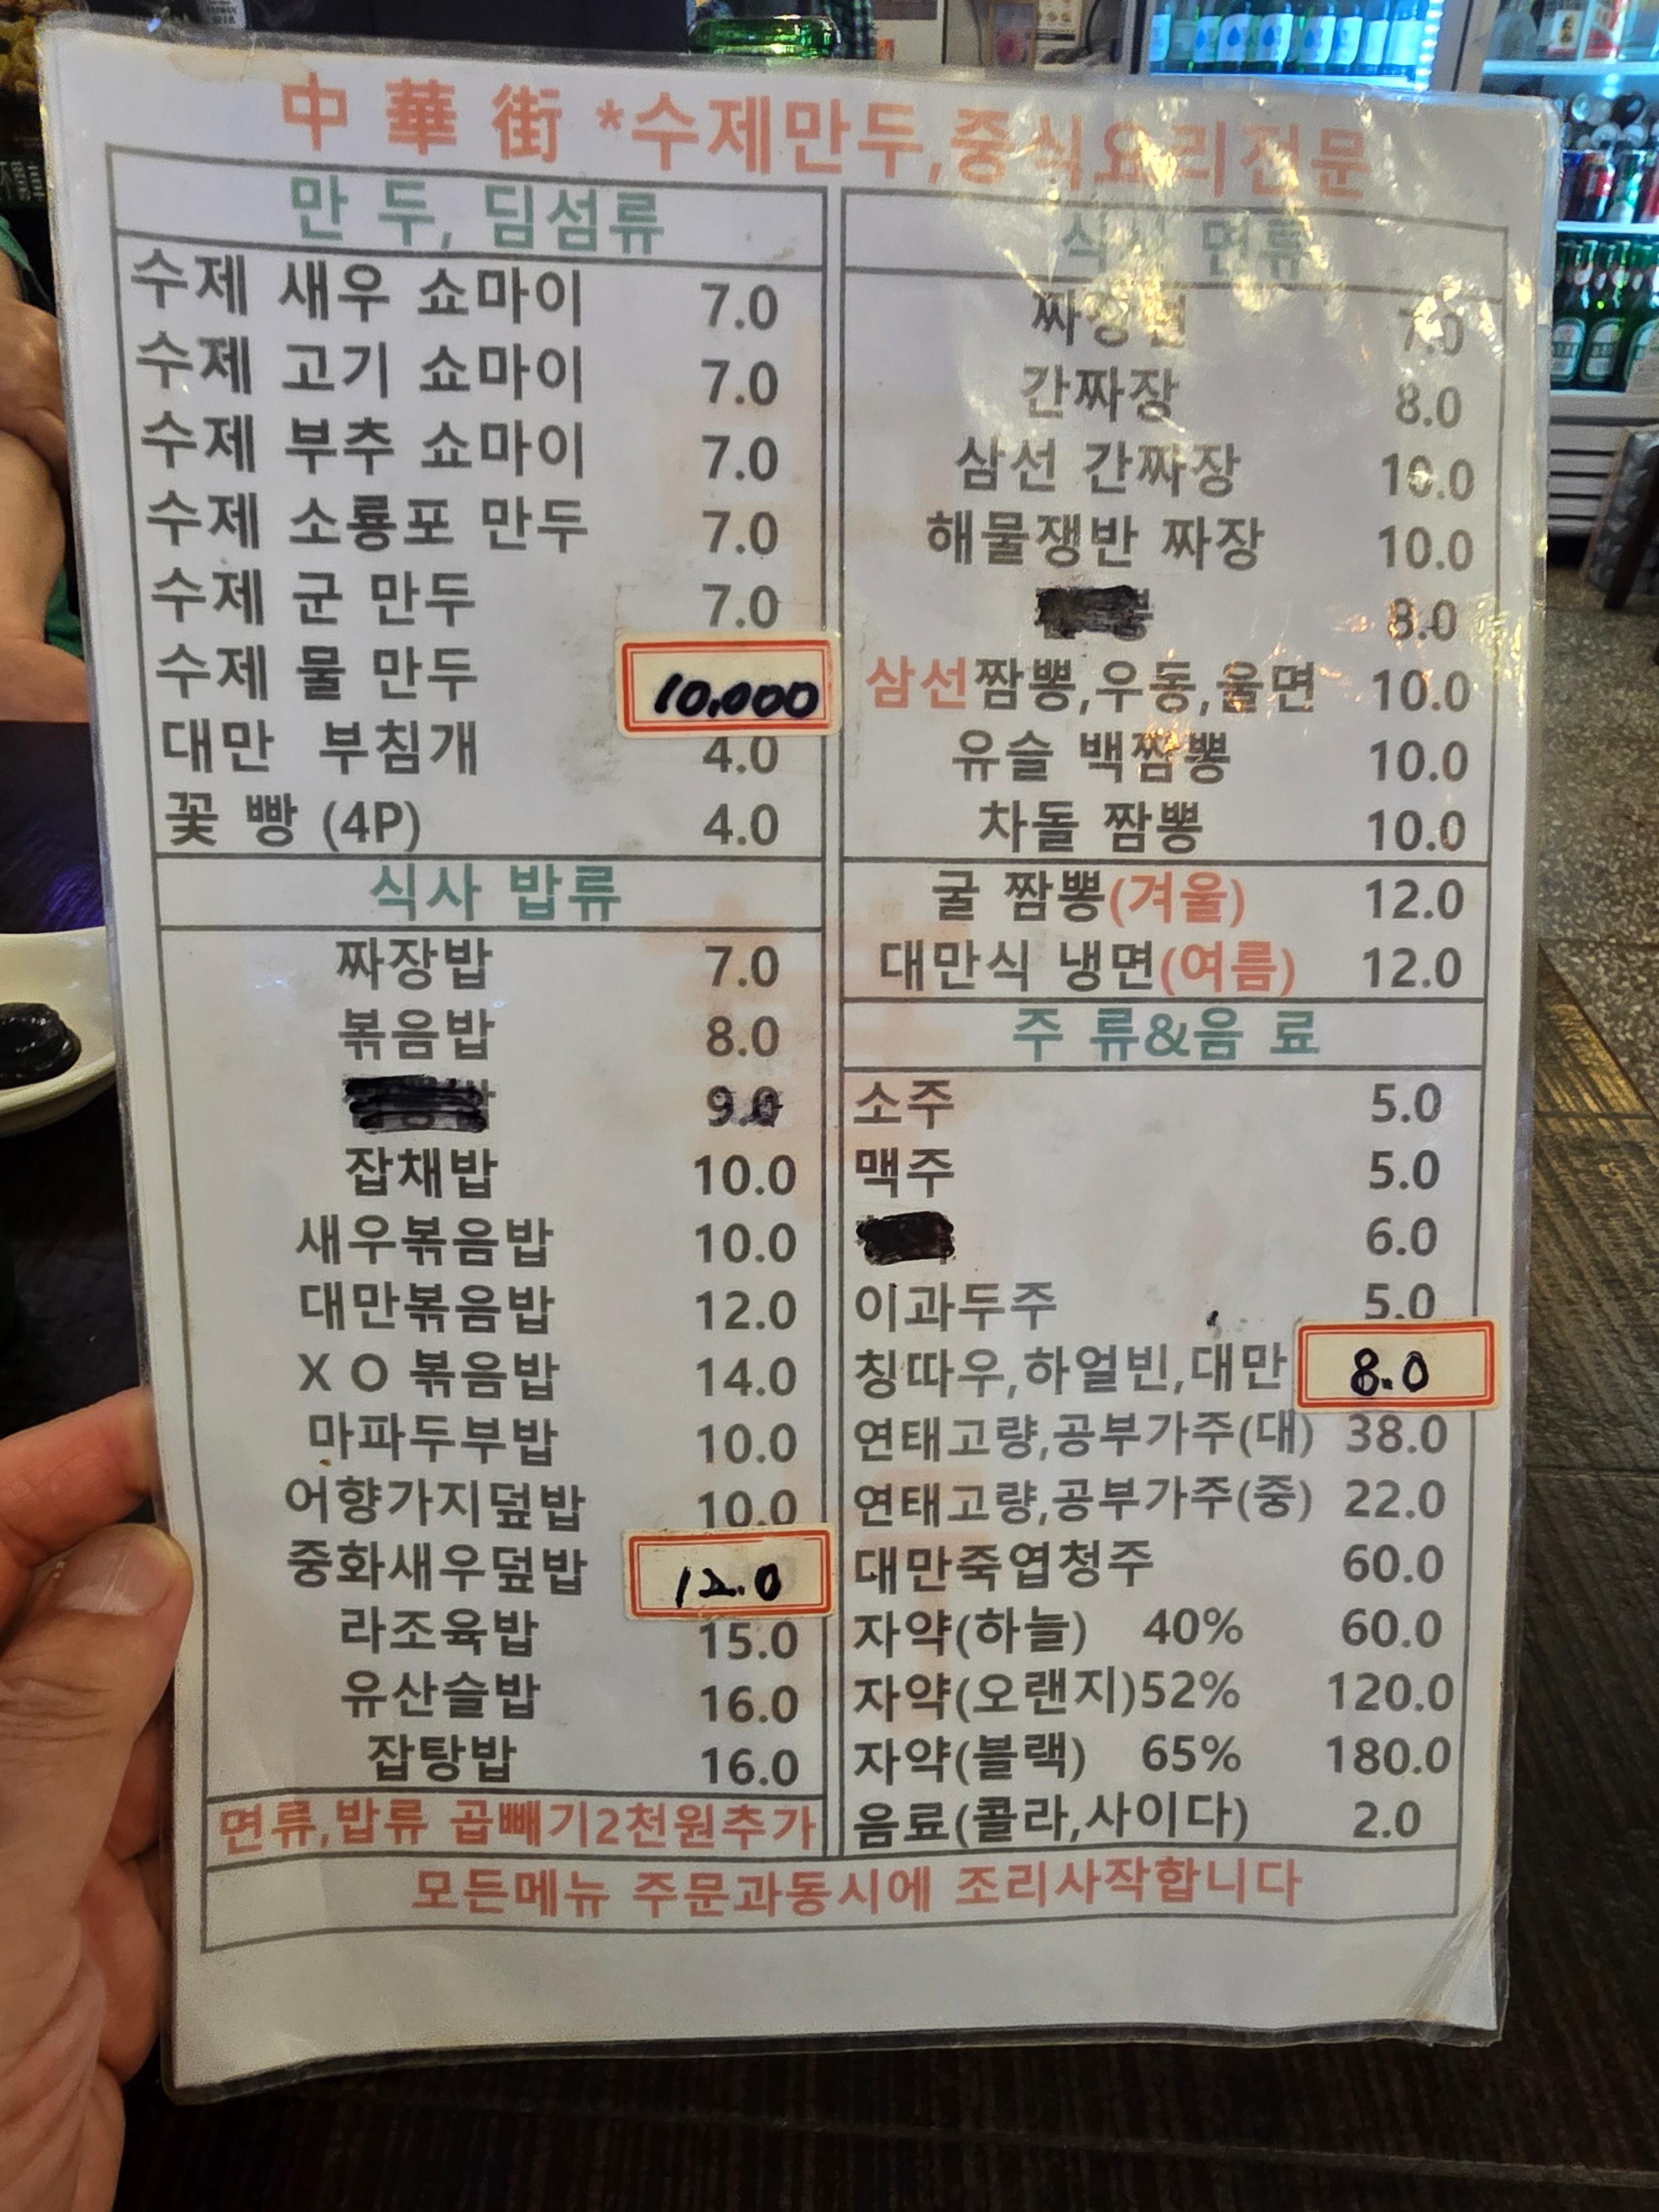 中 華 街 *수제만두,중식요리전문
만 두, 딤섬류
수제 새우 쇼마이 7.0
수제 고기 쇼마이 7.0
수제 부추 쇼마이 7.0
수제 소룡포 만두 7.0
수제 군 만두 7.0
수제 물 만두 10,000
대만 부침개 4.0
꽃 빵 (4P) 4.0
식사 밥류
짜장밥 7.0
볶음밥 8.0
밥 9.0
잡채밥 10.0
새우볶음밥 10.0
대만볶음밥 12.0
X O 볶음밥 14.0
마파두부밥 10.0
어향가지덮밥 10.0
중화새우덮밥 12.0
라조육밥 15.0
유산슬밥 16.0
잡탕밥 16.0
면류,밥류 곱빼기2천원추가
식사 면류
짜장면 7.0
간짜장 8.0
삼선 간짜장 10.0
해물쟁반 짜장 10.0
8.0
삼선짬뽕,우동,울면 10.0
유슬 백짬뽕 10.0
차돌 짬뽕 10.0
굴 짬뽕(겨울) 12.0
대만식 냉면(여름) 12.0
주 류&음 료
소주 5.0
맥주 5.0
6.0
이과두주 5.0
칭따우,하얼빈,대만 8.0
연태고량,공부가주(대) 38.0
연태고량,공부가주(중) 22.0
대만죽엽청주 60.0
자약(하늘) 40% 60.0
자약(오랜지)52% 120.0
자약(블랙) 65% 180.0
음료(콜라,사이다) 2.0
모든메뉴 주문과동시에 조리사작합니다